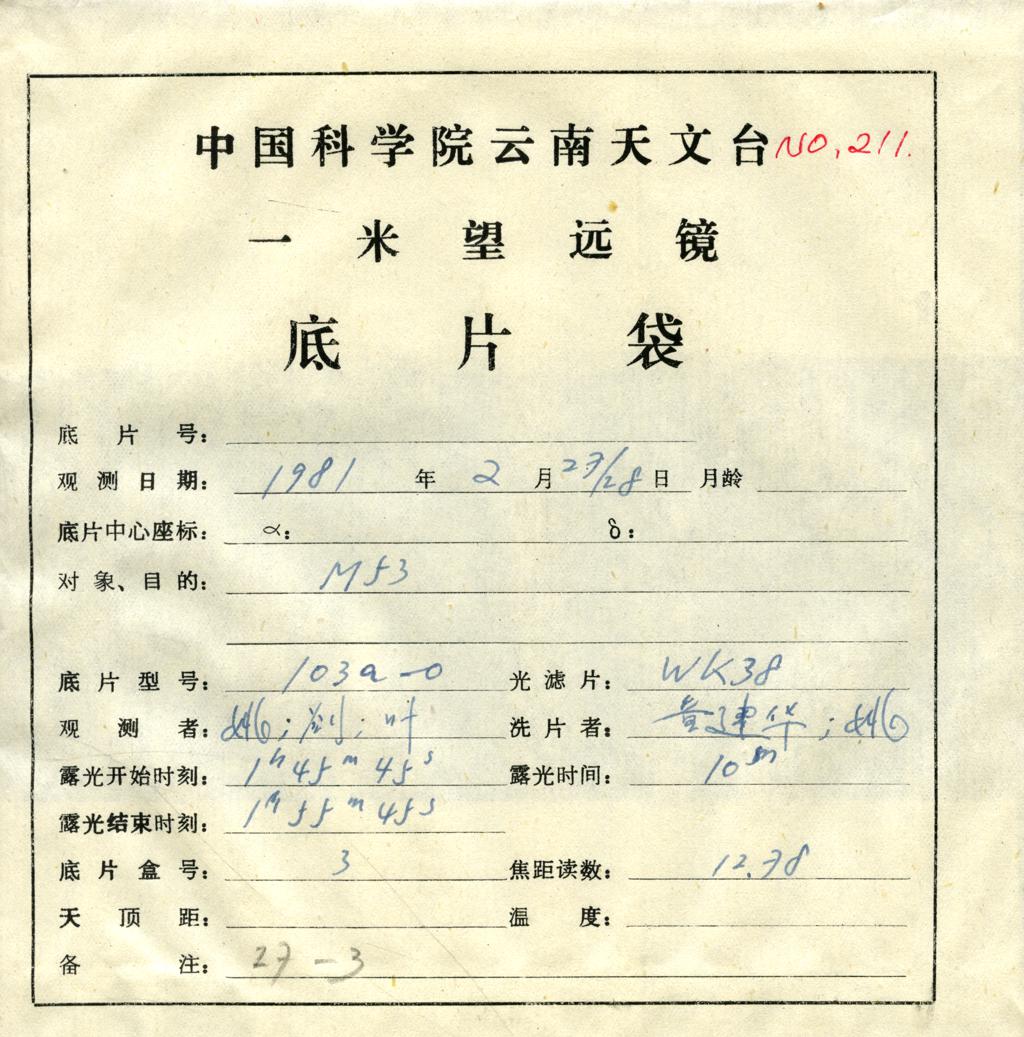 中国科学院云南天文台 NO.211.
一米望远镜
底片袋
底片号:
观测日期: 1981 年 2 月 27/28 日 月龄
底片中心座标: α: δ:
对象、目的: M53
底片型号: 103a-O 光滤片: WK38
观测者: 姚; 刘; 叶 洗片者: 黄建华; 姚
露光开始时刻: 1h 45m 45s 露光时间: 10m
露光结束时刻: 1h 55m 45s
底片盒号: 3 焦距读数: 12.78
天顶距: 温度:
备注: 27-3